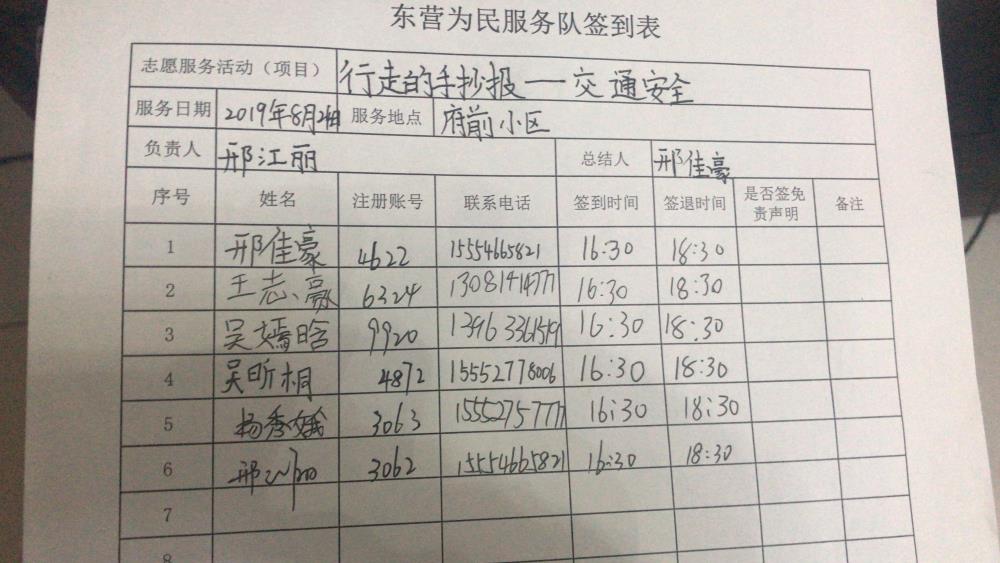 东营为民服务队签到表
志愿服务活动（项目） 行走的手抄报一交通安全
服务日期 2019年8月24日 服务地点 府前小区
负责人 邢江丽 总结人 邢佳豪
序号 姓名 注册账号 联系电话 签到时间 签退时间 是否签免责声明 备注
1 邢佳豪 4622 15554665821 16:30 18:30
2 王志豪 6324 13081414777 16:30 18:30
3 吴嫣晗 9920 16:30 18:30
4 吴昕桐 4872 15552778006 16:30 18:30
5 杨秀娥 3063 15552757777 16:30 18:30
6 邢 3062 15554665821 16:30 18:30
7
8